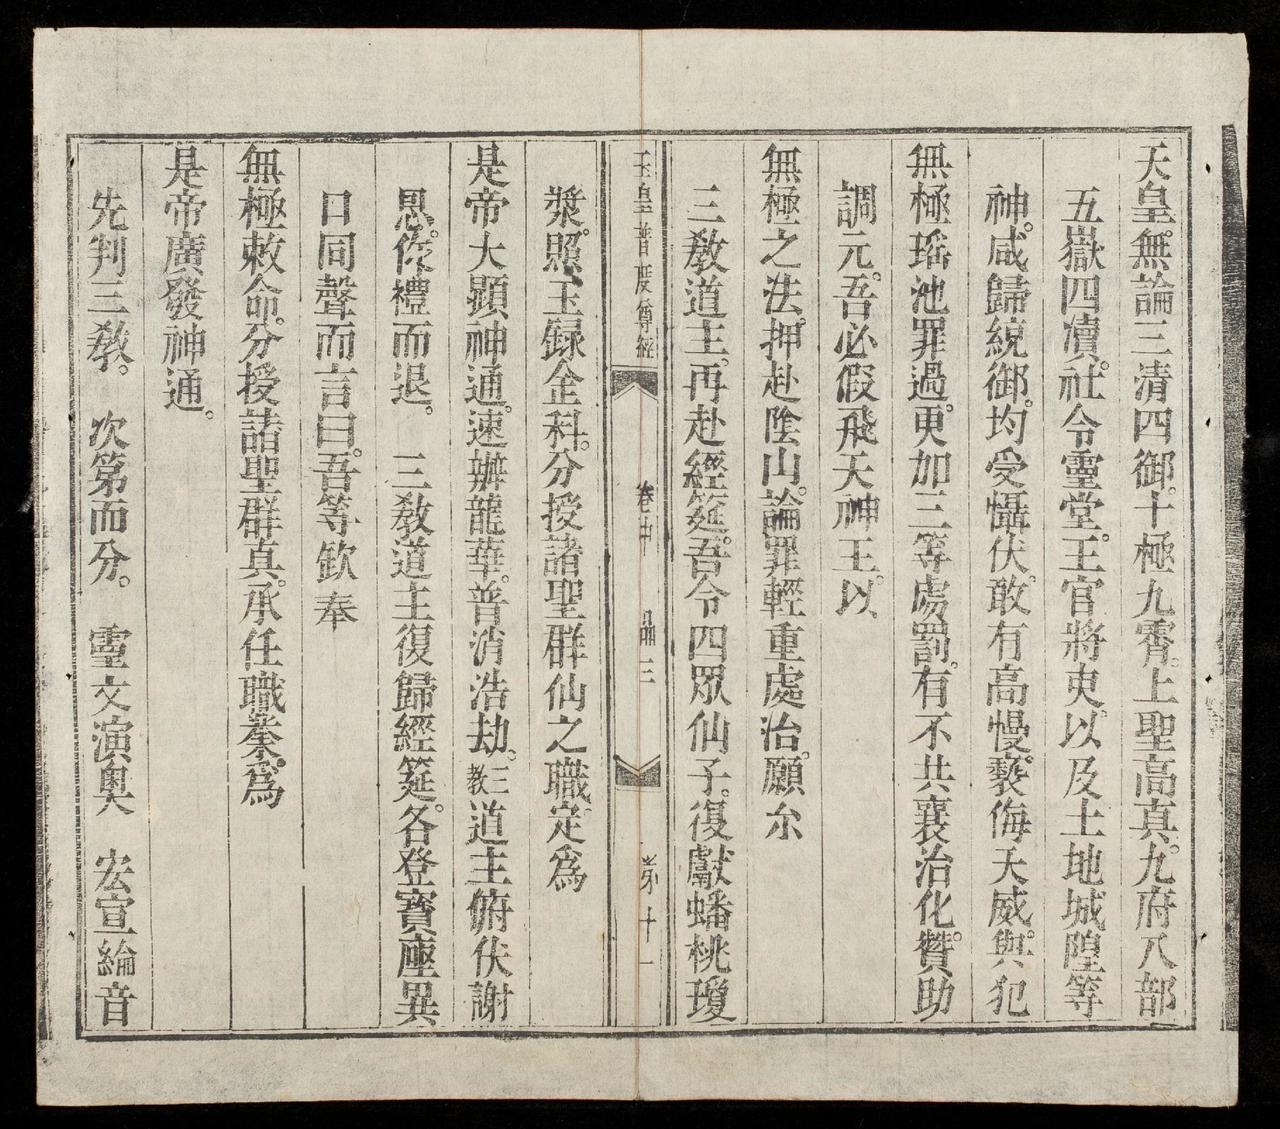 天皇。無論三清四御。十極九霄。上聖高真。九府八部
五嶽四瀆。社令靈堂。王官將吏。以及土地城隍等
神。咸歸統御。均受懾伏。敢有高慢。褻侮天威。與犯
無極瑶池罪過。更加三等處罰。有不共襄治化。贊助
調元。吾必假飛天神王。以
無極之法。押赴陰山。論罪輕重處治。願尒
三教道主。再赴經筵。吾令四眾仙子。復獻蟠桃瓊
玉皇普度尊經 卷中 品三 第十一
漿。照玉録金科。分授諸聖群仙之職。定為
是帝大顯神通。速辦龍華。普消浩劫。三教道主俯伏謝
恩。作禮而退。 三教道主復歸經筵。各登寶座異
口同聲而言曰。吾等欽奉
無極敕命。分授諸聖群真。承任職業。為
是帝廣發神通。
先判三教。 次第而分。 靈文演奧 宏宣綸音